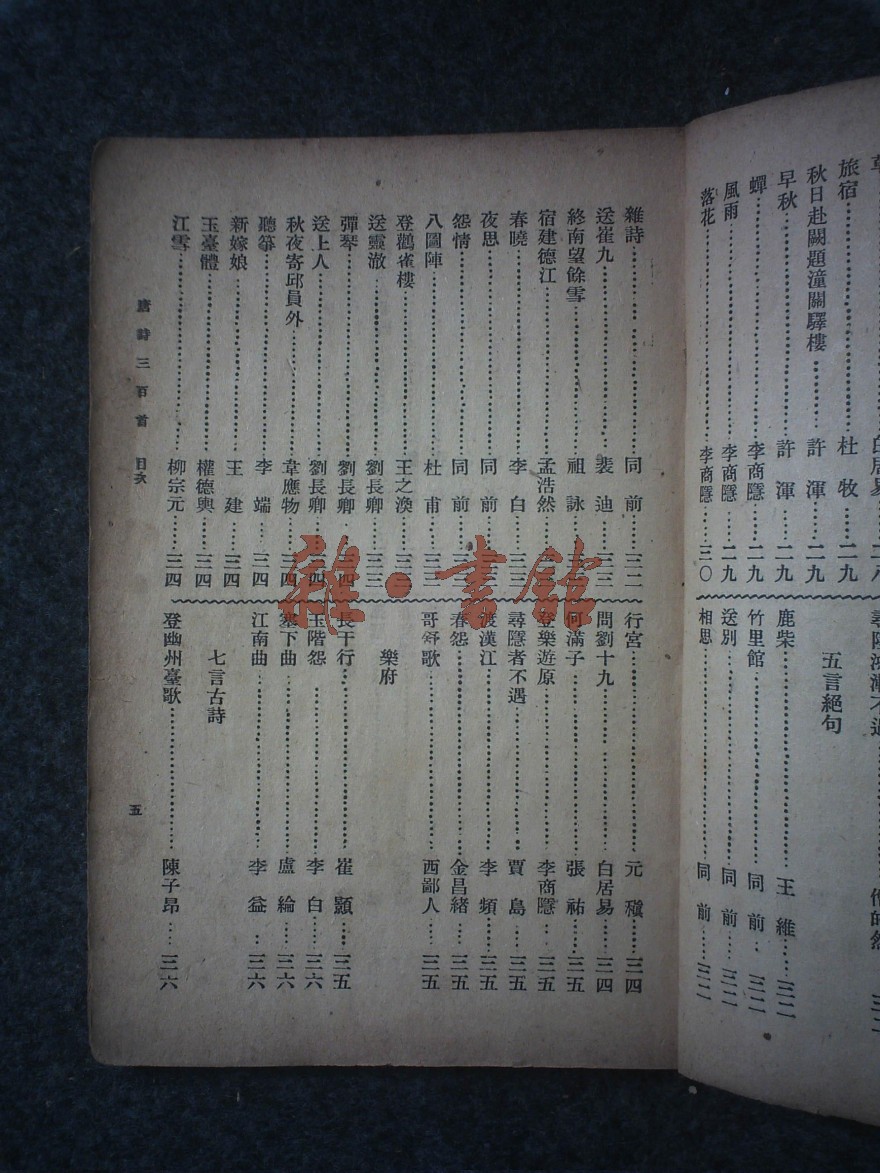 旅宿 杜牧 二九
秋日赴闕題潼關驛樓 許渾 二九
早秋 許渾 二九
蟬 李商隱 二九
風雨 李商隱 二九
落花 李商隱 三〇
五言絕句
鹿柴 王維 三二
竹里館 同前 三二
送別 同前 三二
相思 同前 三二
雜詩 同前 三二
送崔九 裴迪 三三
終南望餘雪 祖詠
宿建德江 孟浩然
春曉 李白 三三
夜思 同前
怨情 同前
八圖陣 杜甫 三三
登鸛雀樓 王之渙 三三
送靈澈 劉長卿 三三
彈琴 劉長卿 三四
送上人 劉長卿 三四
秋夜寄邱員外 韋應物 三四
聽箏 李端 三四
新嫁娘 王建 三四
玉臺體 權德輿 三四
江雪 柳宗元 三四
行宮 元稹 三四
問劉十九 白居易 三四
何滿子 張祜 三五
登樂遊原 李商隱 三五
尋隱者不遇 賈島 三五
渡漢江 李頻 三五
春怨 金昌緒 三五
哥舒歌 西鄙人 三五
樂府
長干行 崔顥 三五
玉階怨 李白 三六
塞下曲 盧綸 三六
江南曲 李益 三六
七言古詩
登幽州臺歌 陳子昂 三六
唐詩三百首 目次
五
雜·書館